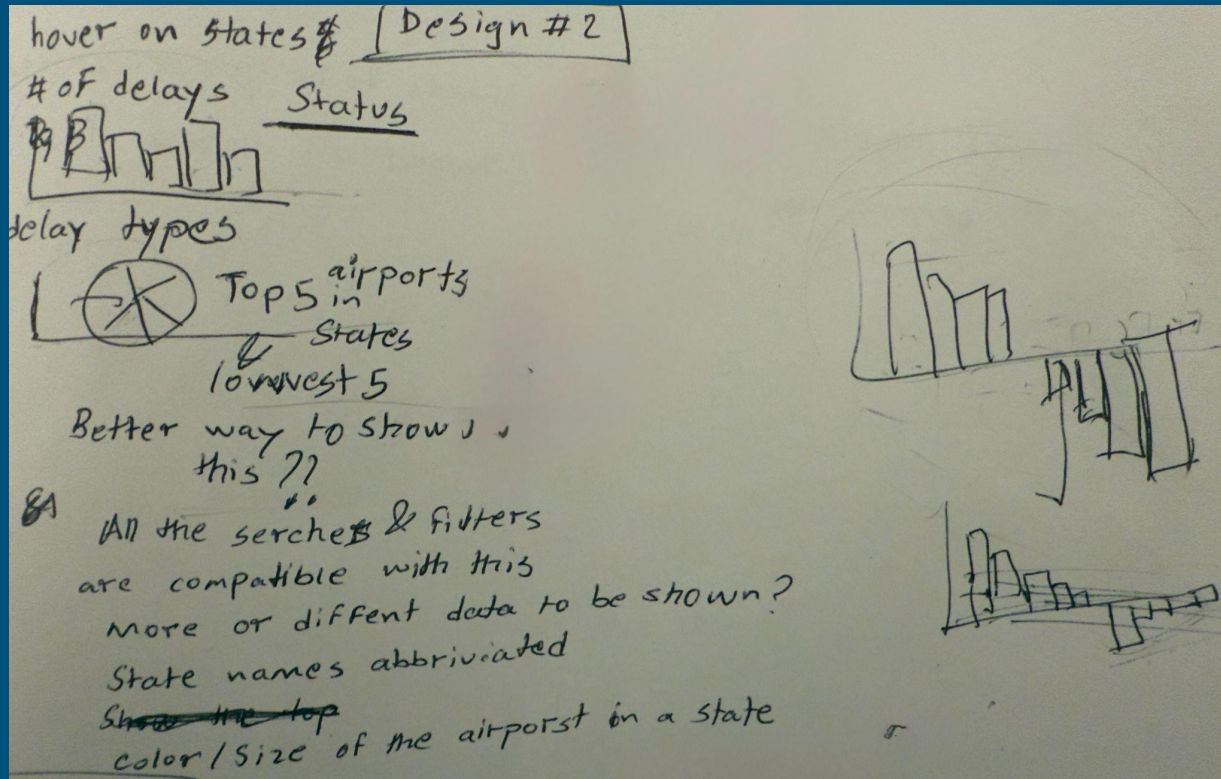 hover on states
Design #2
# of delays
Status
delay types
Top 5 airports
in
States
& lowvest 5
Better way to show
this ??
All the serches & filters
are compatible with this
more or diffent data to be shown?
State names abbriviated
Show the top
color/Size of the airporst in a state